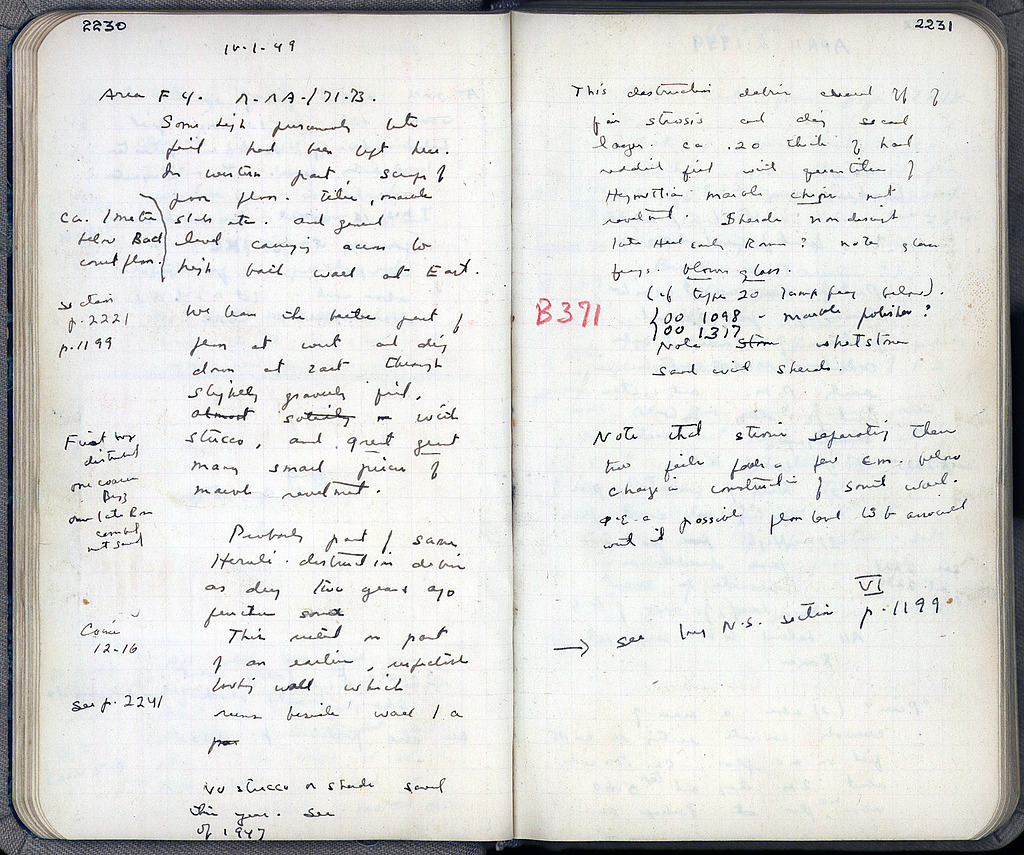 2230
10·1·49
Area F 4.
Some high presumably late
fill had been left here.
In western part, scraps of
poor floor. tile, marble
slabs etc. and general
level carrying across to
high bait wall at East.
ca. 1 meter
below Back
court floor.
section
p.2221
p.1199
We clean the better part of
floor at west and dig
down at east through
slightly gravelly fill,
almost solidly with
stucco, and great
many small pieces of
marble revetment.
First too
disturbed
one coarse
Byz
one late Rom
not saved
Probably part of same
Heruli. destruction debris
as dug two years ago
This rested on part
of an earlier,
looking wall which
runs beside wall 1 a
Coins
12-16
see p. 2241
No stucco or sherds saved
this year. See
of 1947
2231
This destruction debris
fair strosis and clay
layer. ca .20 thick of hard
reddish fill with quantities of
Hymettian marble chips not
revetment. Sherds: nondescript
late Hell early Roman? note glass
frags. blown glass.
(cf type 20 lamp frag below).
B371
OO 1098 - marble polisher?
OO 1317
Note whetstone
sand with sherds.
Note that strosis separating these
two fills a few cm. below
change in construction of south wall.
possible floor level to be associated
with it
VI
→ see long N.S. section p.1199